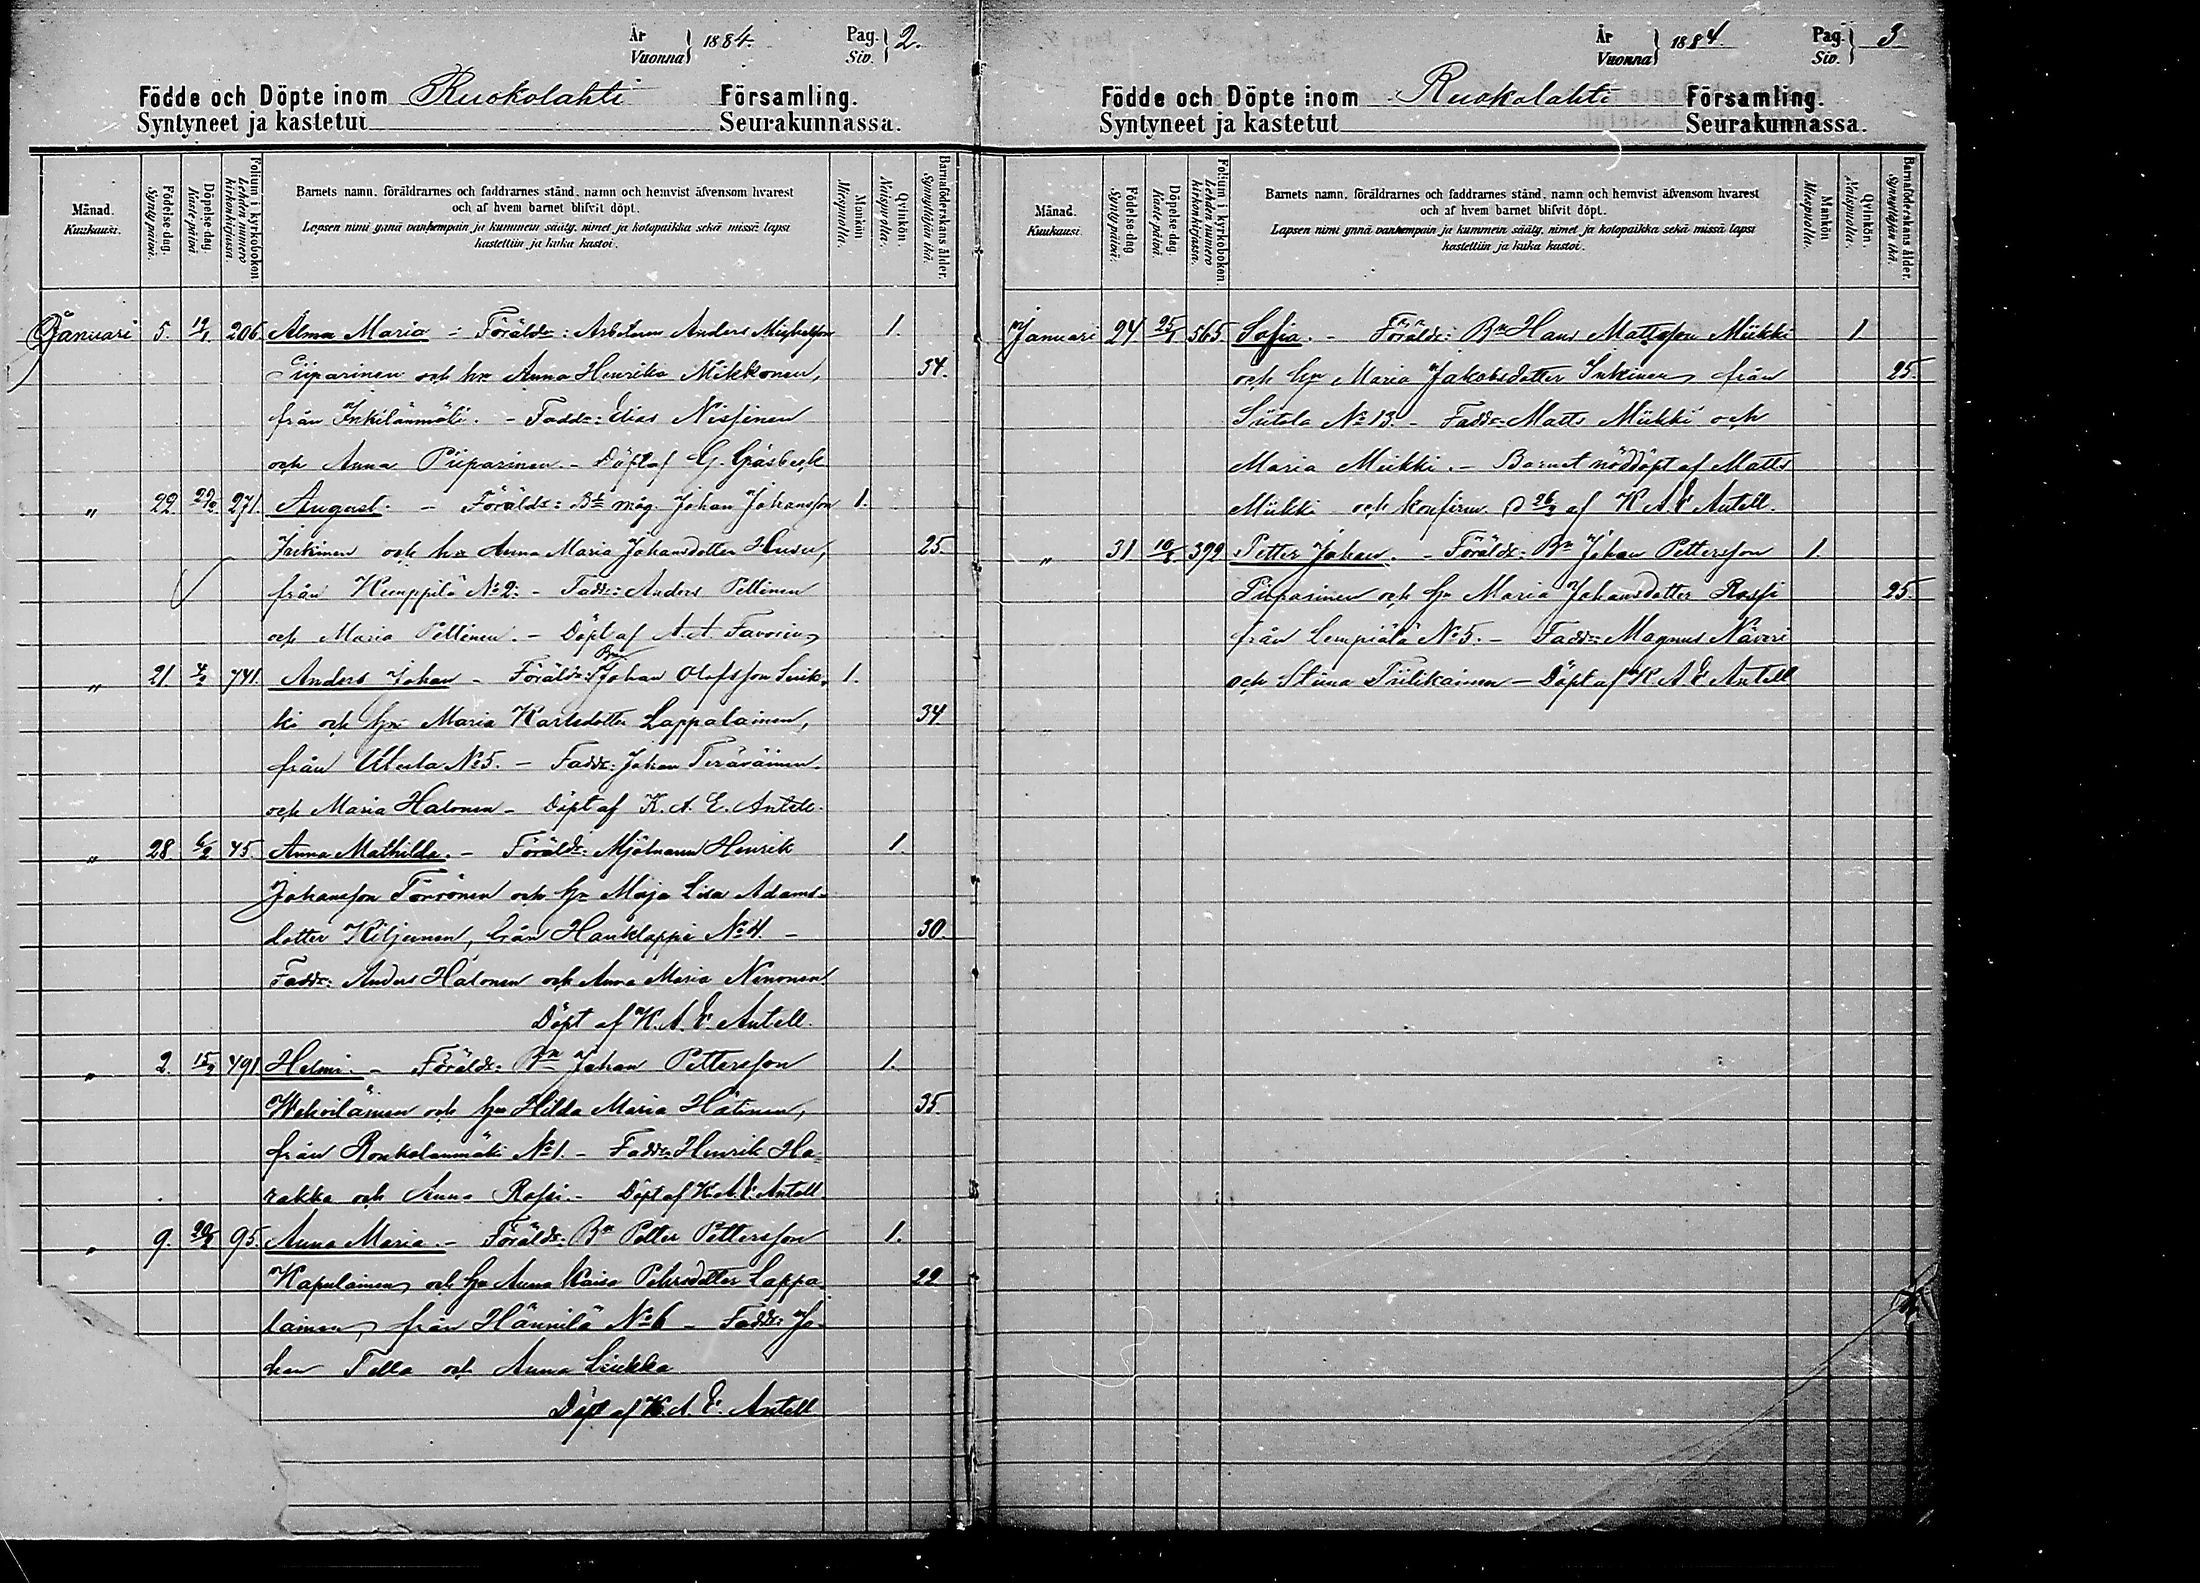 År
Vuonna } 1884.
Pag.
Siv. } 2.
Födde och Döpte inom Ruokolahti Församling.
Syntyneet ja kastetut Seurakunnassa.
Månad.
Kuukausi.
Födelse-dag.
Syntypäivä.
Döpelse-dag.
Kaste päivä
Folium i kyrkobokon.
Lehden numero
kirkonkirjassa.
Barnets namn, föräldrarnes och faddrarnes stånd, namn och hemvist äfvensom hvarest
och af hvem barnet blifvit döpt.
Lapsen nimi ynnä vanhempain ja kummein sääty, nimet ja kotopaikka sekä missä lapsi
kastettiin ja kuka kastoi.
Mankön
Miespuolia.
Qvinkön.
Naispuolia.
Barnaföderskans ålder.
Synnyttäjän ikä.
Januari 5. 19/1 206. Alma Maria - Föräldr: Arbetaren Anders Michelsson 1.
Piiparinen och hu Anna Henrika Mikkonen, 34.
från Inkilänmäki. - Faddr: Elias Nissinen
och Anna Piiparinen - Döpt af G. Gåsbeck
" 22 27/2 271. August. - Föräldr: Bde måg. Johan Johansson 1.
Inkinen och hu Anna Maria Johansdotter Husu, 25.
från Kemppilä No 2. - Faddr: Anders Pellinen
och Maria Pellinen. - Döpt af A. A. Favorin
" 21 4/2 741. Anders Johan - Föräldr: Bn Johan Olofsson Seik- 1.
ki och hu Maria Karlsdotter Lappalainen, 34.
från Utula No 5. - Faddr: Johan Teräväinen
och Maria Halonen - Döpt af K. A. E. Antell.
" 28 6/2 45. Anna Mathilda. - Föräldr: Mjölnaren Henrik 1.
Johansson Törrönen och hu Maja Lisa Adams-
dotter Kiljunen, från Hauklappi No 4. - 30.
Faddr: Anders Halonen och Anna Maria Nenonen
Döpt af K. A. E. Antell.
" 2. 15/2 491 Helmi. - Föräldr: Bn Johan Pettersson 1.
Wehviläinen och hu Hilda Maria Hätinen, 35.
från Roukolanmäki No 1. - Faddr: Henrik Ha-
rakka och Anna Rossi. - Döpt af K. A. E. Antell
" 9. 20/2 95. Anna Maria. - Föräldr: Bn Petter Pettersson 1.
Kapulainen och hu Anna Kaisa Pehrsdotter Lappa- 22
lainen, från Hännilä No 6 - Faddr: Jo-
han Tella och Anna Liukka
Döpt af K. A. E. Antell
År
Vuonna } 1884
Pag.
Siv. } 3
Födde och Döpte inom Ruokolahti Församling.
Syntyneet ja kastetut Seurakunnassa.
Månad.
Kuukausi.
Födelse-dag
Syntypäivä.
Döpelse-dag.
Kaste päivä
Folium i kyrkobokon.
Lehden numero
kirkonkirjassa.
Barnets namn, föräldrarnes och faddrarnes stånd, namn och hemvist äfvensom hvarest
och af hvem barnet blifvit döpt.
Lapsen nimi ynnä vanhempain ja kummein sääty, nimet ja kotopaikka sekä missä lapsi
kastettiin ja kuka kastoi.
Mankön
Miespuolia.
Qvinkön.
Naispuolia.
Barnaföderskans ålder.
Synnyttäjän ikä.
Januari 24 25/1 565 Sofia. - Föräldr: Bn Hans Mattsson Miikki 1.
och hu Maria Jakobsdotter Inkinen från 25.
Siitola No 13. - Faddr: Matts Miikki och
Maria Miikki. - Barnet nöddöpt af Matts
Miikki och konfirm. d 26/3 af K. A. E. Antell.
" 31 10/2 399 Petter Johan. - Föräldr: Bn Johan Pettersson 1.
Piiparinen och hu Maria Johansdotter Rossi 25.
från Lempiälä No 5. - Faddr: Magnus Näveri
och Stina Tiilikainen - Döpt af K. A. E. Antell